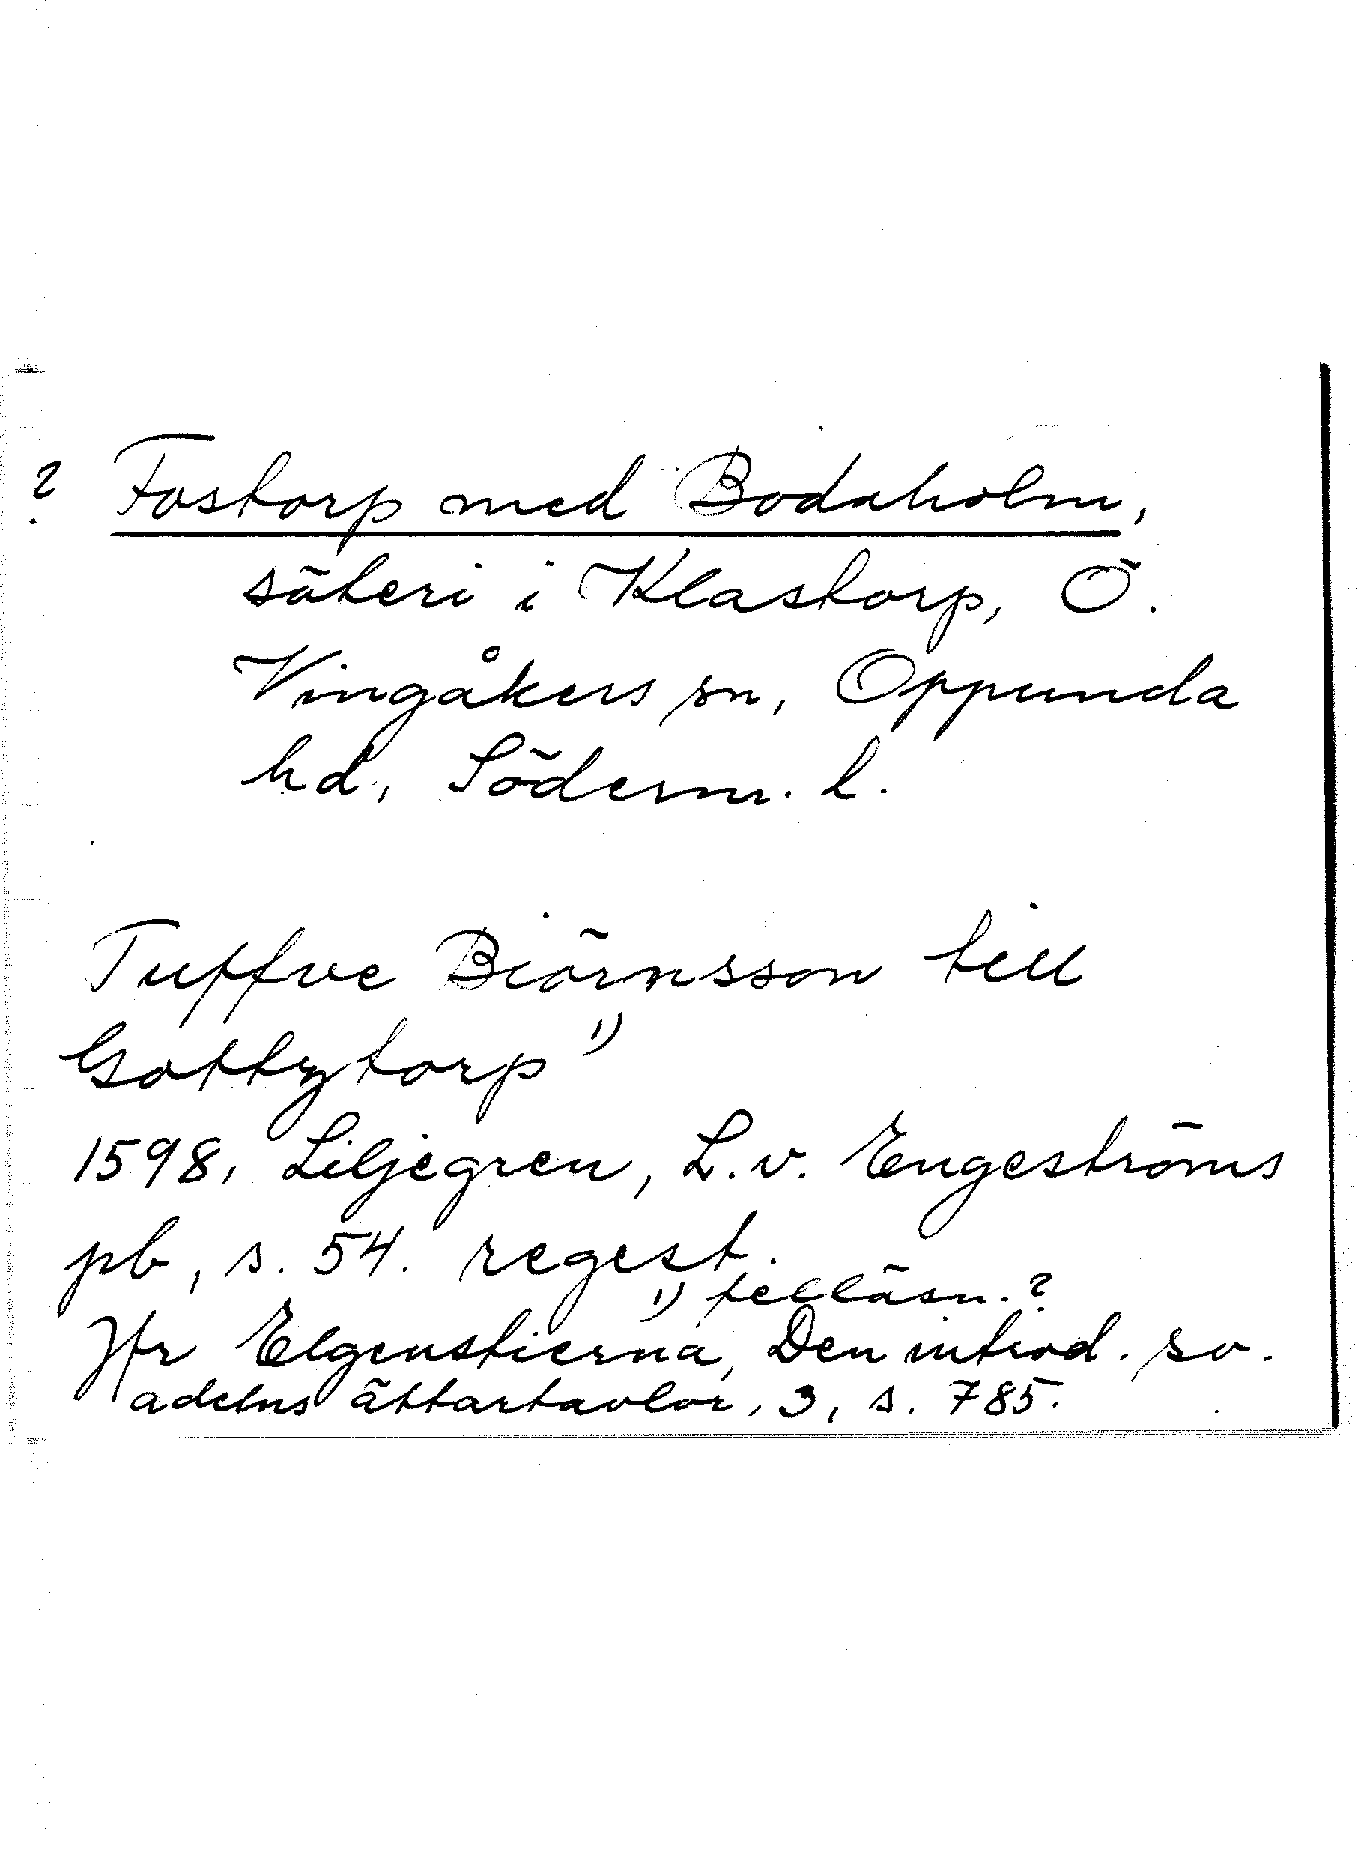 ? Fostorp med Bodaholm,
säteri i Klastorp, Ö.
Vingåkers sn, Oppunda
hd, Söderm. l.
Tuffve Biörnsson till
Gottztorp 1)
1598, Liljegren, L. v. Engeströms
pb, s. 54. regest.
1) felläsn.?
Jfr Elgenstierna, Den introd. sv.
adelns ättartavlor, 3, s. 785.